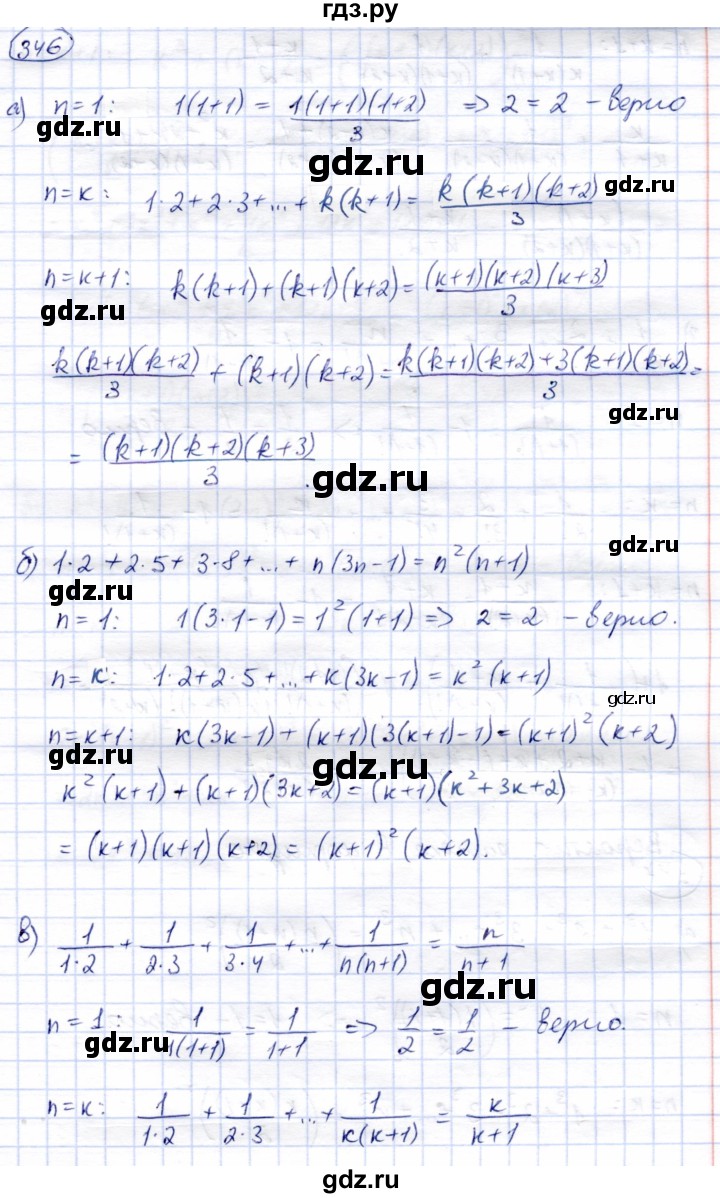 гдз.ру
346
а) n=1: 1(1+1) = 1(1+1)(1+2)/3 => 2=2 - верно
gdz.ru gdz.ru
n=k: 1·2+2·3+...+k(k+1) = k(k+1)(k+2)/3
gdz.ru
n=k+1: k(k+1)+(k+1)(k+2) = (k+1)(k+2)(k+3)/3
gdz.ru
k(k+1)(k+2)/3 + (k+1)(k+2) = k(k+1)(k+2)+3(k+1)(k+2)/3 =
gdz.ru
= (k+1)(k+2)(k+3)/3.
gdz.ru
gdz.ru
б) 1·2+2·5+3·8+...+n(3n-1) = n²(n+1)
gdz.ru
n=1: 1(3·1-1) = 1²(1+1) => 2=2 - верно.
n=k: 1·2+2·5+...+k(3k-1) = k²(k+1)
gdz.ru
n=k+1: k(3k-1)+(k+1)(3(k+1)-1) = (k+1)²(k+2)
gdz.ru gdz.ru
k²(k+1)+(k+1)(3k+2) = (k+1)(k²+3k+2)
= (k+1)(k+1)(k+2) = (k+1)²(k+2).
в) 1/1·2 + 1/2·3 + 1/3·4 +...+ 1/n(n+1) = n/n+1
gdz.ru
n=1: 1/1(1+1) = 1/1+1 => 1/2 = 1/2 - верно.
gdz.ru
n=k: 1/1·2 + 1/2·3 +...+ 1/k(k+1) = k/k+1
gdz.ru
gdz.ru